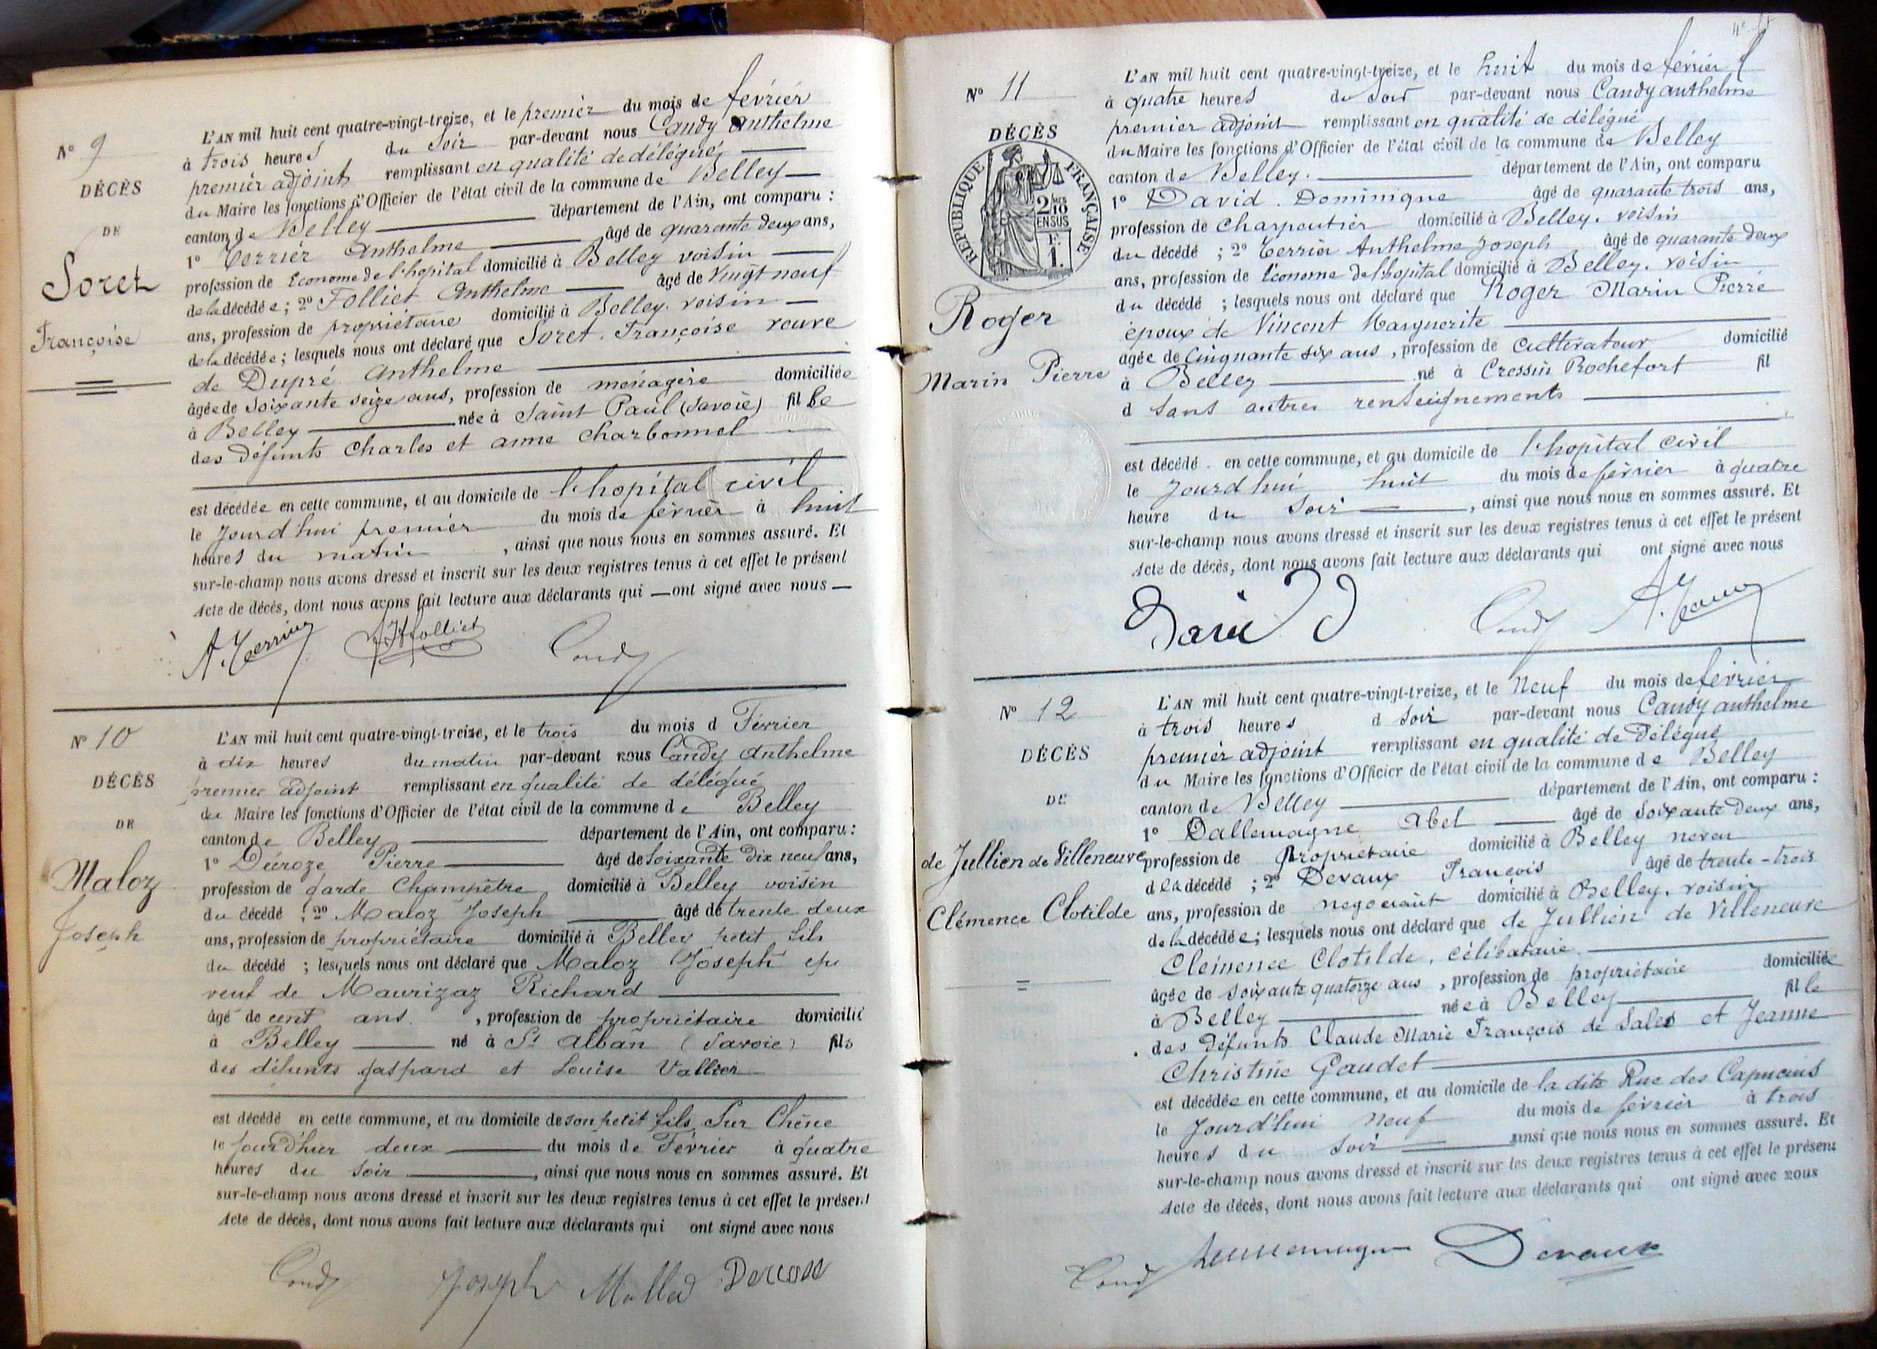 N° 9
DÉCÈS
DE
Soret
Françoise
L'AN mil huit cent quatre-vingt-treize, et le premier du mois de février
à trois heures du soir par-devant nous Candy Anthelme
premier adjoint remplissant en qualité de délégué
du Maire les fonctions d'Officier de l'état civil de la commune de Belley
canton de Belley département de l'Ain, ont comparu :
1° Terrier Anthelme âgé de quarante deux ans,
profession de Econome de l'hopital domicilié à Belley voisin
de la décédée ; 2° Folliet Anthelme âgé de vingt neuf
ans, profession de propriétaire domicilié à Belley. voisin
de la décédée ; lesquels nous ont déclaré que Soret. Françoise veuve
de Dupré Anthelme
âgée de soixante seize ans, profession de ménagère domiciliée
à Belley née à Saint Paul (Savoie) fille
des défunts Charles et anne Charbonnel
est décédée en cette commune, et au domicile de l'hopital civil
le jourd'hui premier du mois de février à huit
heures du matin, ainsi que nous nous en sommes assuré. Et
sur-le-champ nous avons dressé et inscrit sur les deux registres tenus à cet effet le présent
Acte de décès, dont nous avons fait lecture aux déclarants qui ont signé avec nous
A. Terrier AFolliet Candy
N° 10
DÉCÈS
DE
Maloz
Joseph
L'AN mil huit cent quatre-vingt-treize, et le trois du mois d Février
à dix heures du matin par-devant nous Candy Anthelme
premier adjoint remplissant en qualité de délégué
du Maire les fonctions d'Officier de l'état civil de la commune de Belley
canton de Belley département de l'Ain, ont comparu :
1° Décroze Pierre âgé de soixante dix neuf ans,
profession de garde Champêtre domicilié à Belley voisin
du décédé ; 2° Maloz Joseph âgé de trente deux
ans, profession de propriétaire domicilié à Belley petit fils
du décédé ; lesquels nous ont déclaré que Maloz Joseph
veuf de Maurizaz Richard
âgé de cent ans, profession de propriétaire domicilié
à Belley né à St Alban (Savoie) fils
des défunts gaspard et Louise Vallier
est décédé en cette commune, et au domicile de son petit fils Sur Chêne
le jourd'hier deux du mois de Février à quatre
heures du soir, ainsi que nous nous en sommes assuré. Et
sur-le-champ nous avons dressé et inscrit sur les deux registres tenus à cet effet le présent
Acte de décès, dont nous avons fait lecture aux déclarants qui ont signé avec nous
Candy Joseph
N° 11
DÉCÈS
RÉPUBLIQUE FRANÇAISE
2/10 EN SUS
F.
1.
Roger
Marin Pierre
L'AN mil huit cent quatre-vingt-treize, et le huit du mois de février
à quatre heures du soir par-devant nous Candy anthelme
premier adjoint remplissant en qualité de délégué
du Maire les fonctions d'Officier de l'état civil de la commune de Belley
canton de Belley. département de l'Ain, ont comparu
1° David. Dominique âgé de quarante trois ans,
profession de charpentier domicilié à Belley. voisin
du décédé ; 2° Terrier Anthelme Joseph âgé de quarante deux
ans, profession de Econome de l'hopital domicilié à Belley. voisin
du décédé ; lesquels nous ont déclaré que Roger Marin Pierre
époux de Vincent Marguerite
agée de Cinquante six ans, profession de cultivateur domicilié
à Belley né à Cressin Rochefort fil
d sans autres renseignements
est décédé en cette commune, et au domicile de l'hopital civil
le jourd'hui huit du mois de février à quatre
heure du soir, ainsi que nous nous en sommes assuré. Et
sur-le-champ nous avons dressé et inscrit sur les deux registres tenus à cet effet le présent
Acte de décès, dont nous avons fait lecture aux déclarants qui ont signé avec nous
David Candy A. Terrier
N° 12
DÉCÈS
DE
de Jullien de Villeneuve
Clémence Clotilde
L'AN mil huit cent quatre-vingt-treize, et le Neuf du mois de février
à trois heures d soir par-devant nous Candy anthelme
premier adjoint remplissant en qualité de Délégué
du Maire les fonctions d'Officier de l'état civil de la commune de Belley
canton de Belley département de l'Ain, ont comparu :
1° Dallemagne Abel âgé de soixante deux ans,
profession de Propriétaire domicilié à Belley neveu
de la décédé ; 2° Devaux François âgé de trente-trois
ans, profession de negociant domicilié à Belley. voisin
de la décédée ; lesquels nous ont déclaré que de Jullien de Villeneuve
Clémence Clotilde, célibataire
âgée de soixante quatorze ans, profession de propriétaire domiciliée
à Belley née à Belley fille
des défunts Claude Marie François de Sales et Jeanne
Christine Gaudet
est décédée en cette commune, et au domicile de la dite Rue des Capucins
le jourd'hui neuf du mois de février à trois
heures du soir ainsi que nous nous en sommes assuré. Et
sur-le-champ nous avons dressé et inscrit sur les deux registres tenus à cet effet le présent
Acte de décès, dont nous avons fait lecture aux déclarants qui ont signé avec nous
Candy Devaux